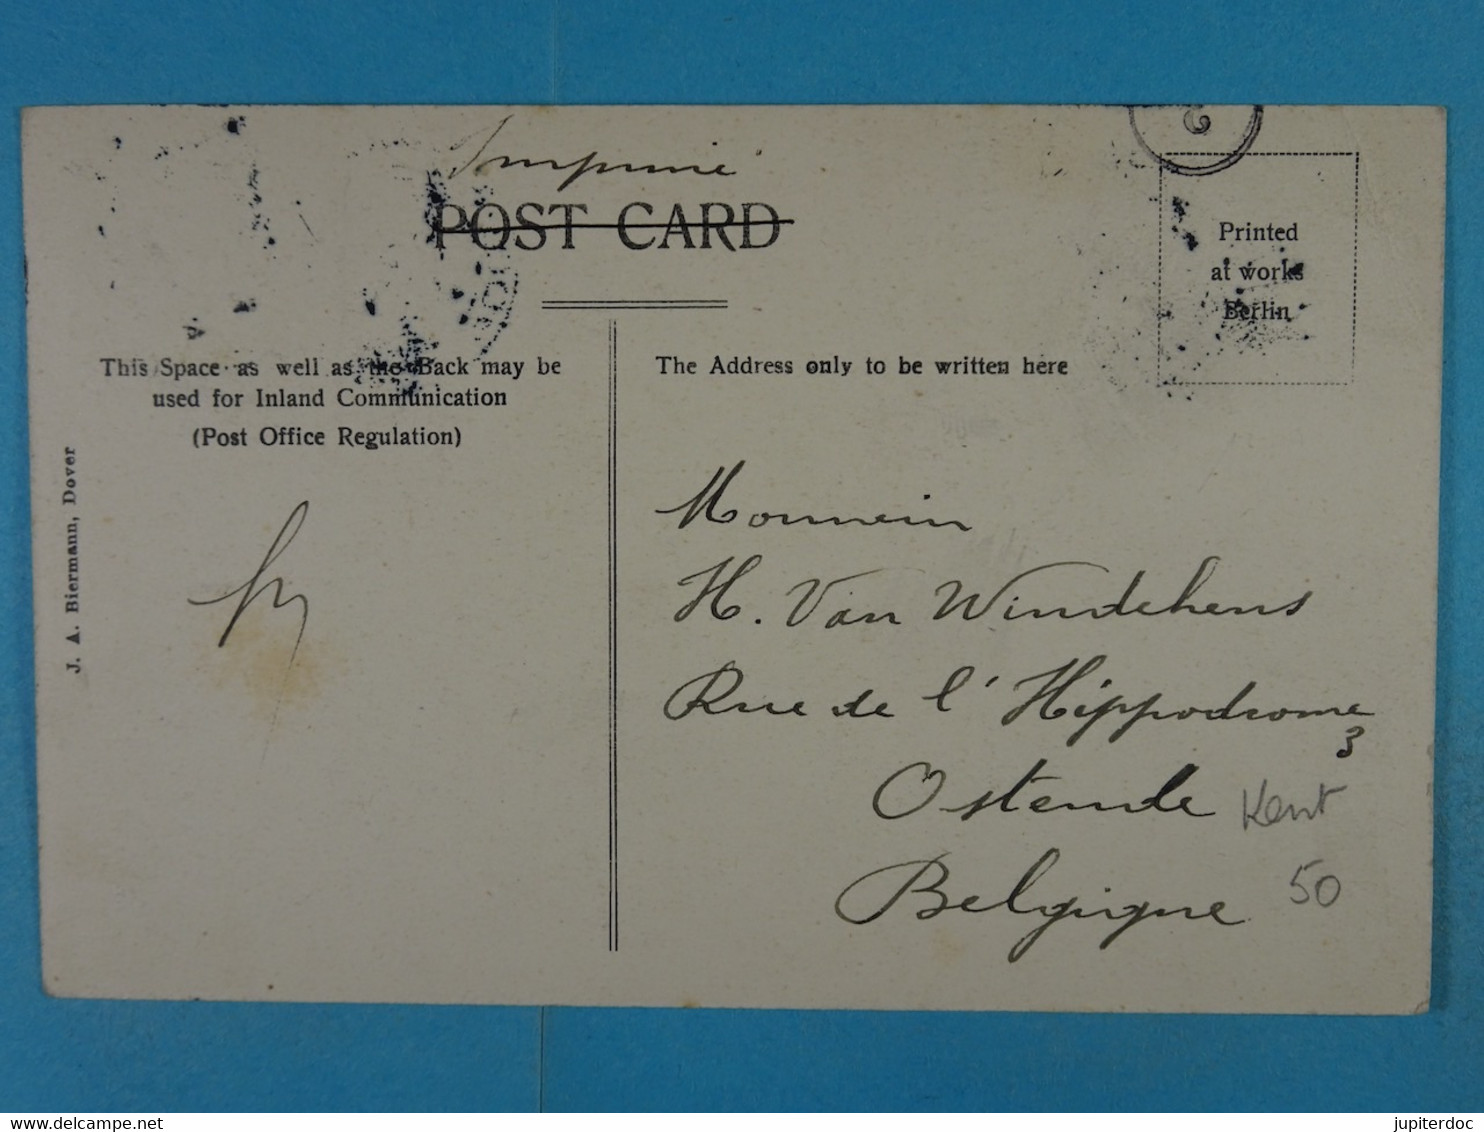 Imprimé
POST CARD
Printed
at works
Berlin
This Space as well as the Back may be
used for Inland Communication
(Post Office Regulation)
The Address only to be written here
J. A. Biermann, Dover
H. Van Windekens
Rue de l'Hippodrome
3
Ostende
Kent
Belgique
50
delcampe.net
jupiterdoc